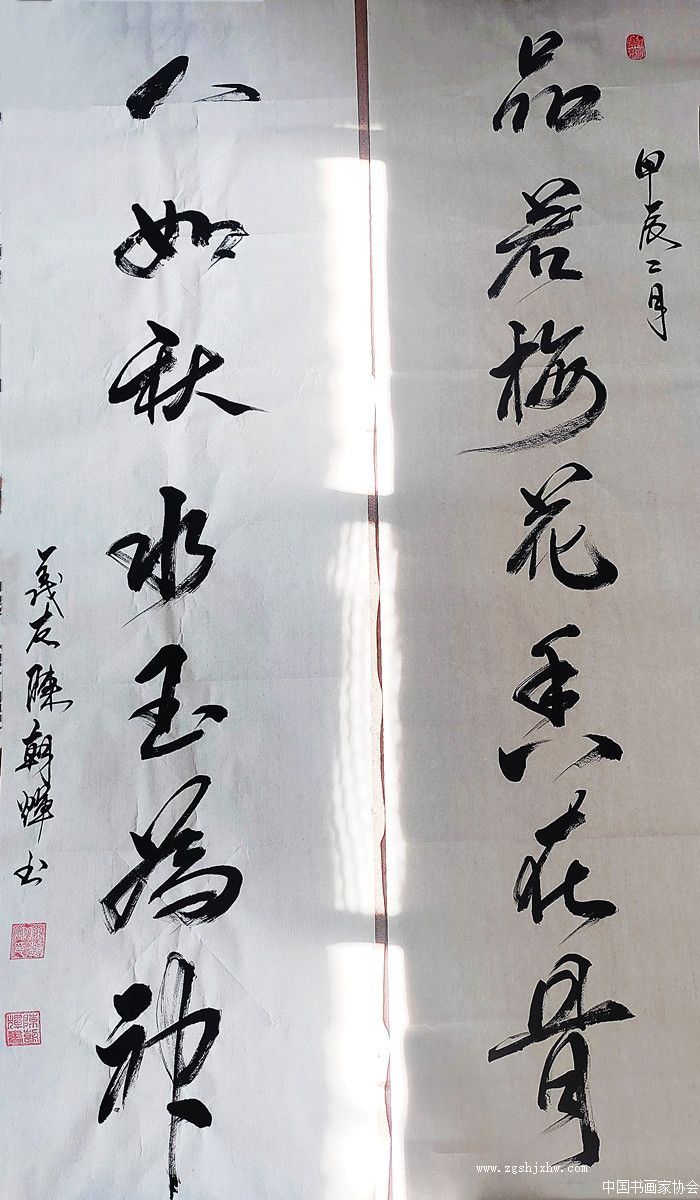 甲辰二月
品若梅花香在骨
人如秋水玉為神
義友陳朝輝書
www.zgshjxhw.com
中国书画家协会